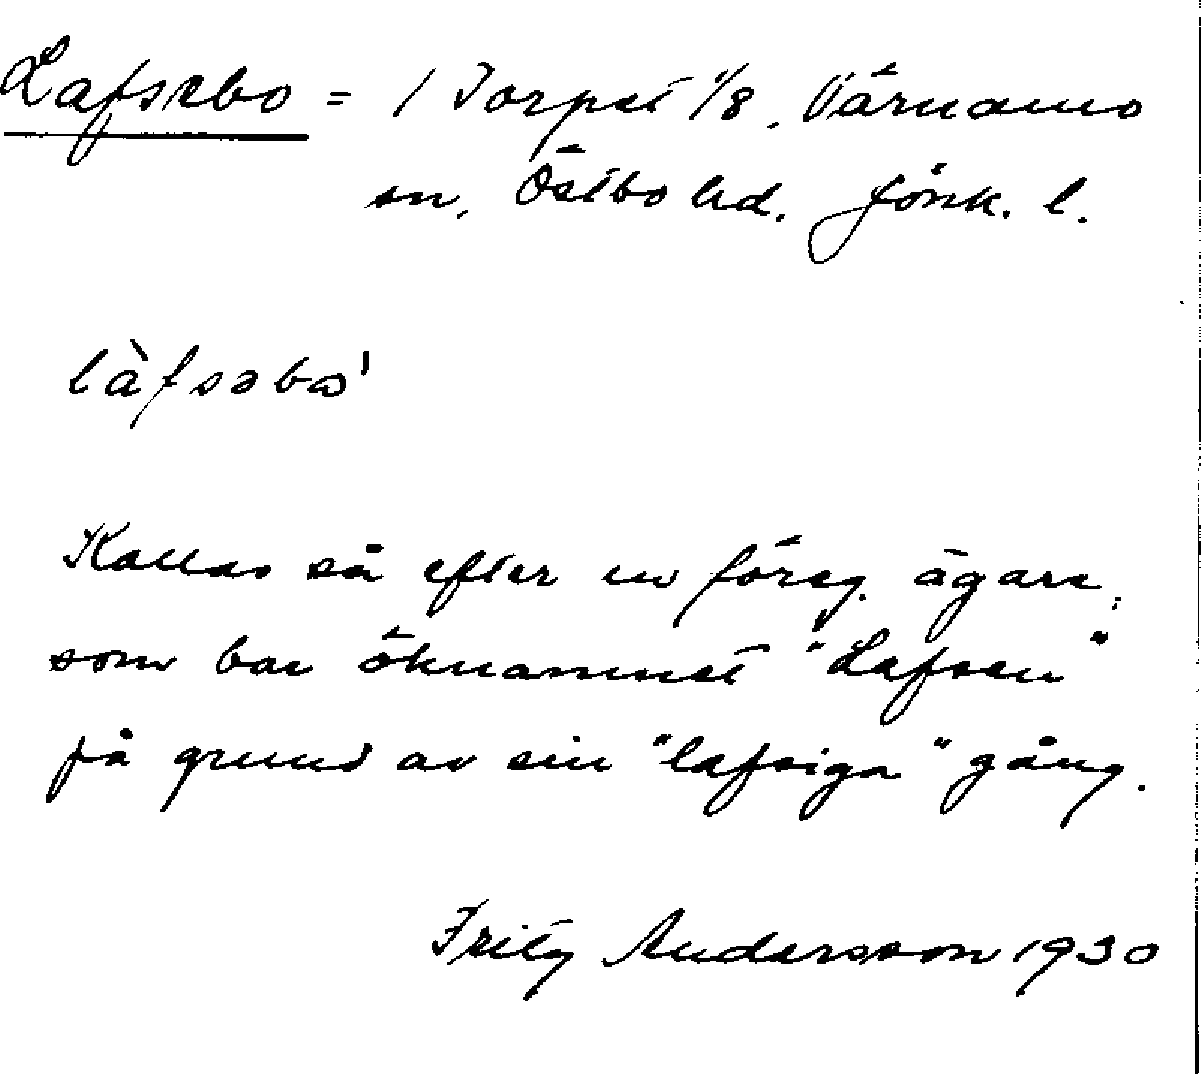 Lafsebo = / Torpet 1/8, Värnamo
sn, Östbo hd. Jönk. l.
làfsəbω'
Kallas så efter en föreg. ägare,
som bar öknamnet "Lafsen"
på grund av sin "lafsiga" gång.
Fritz Andersson 1930